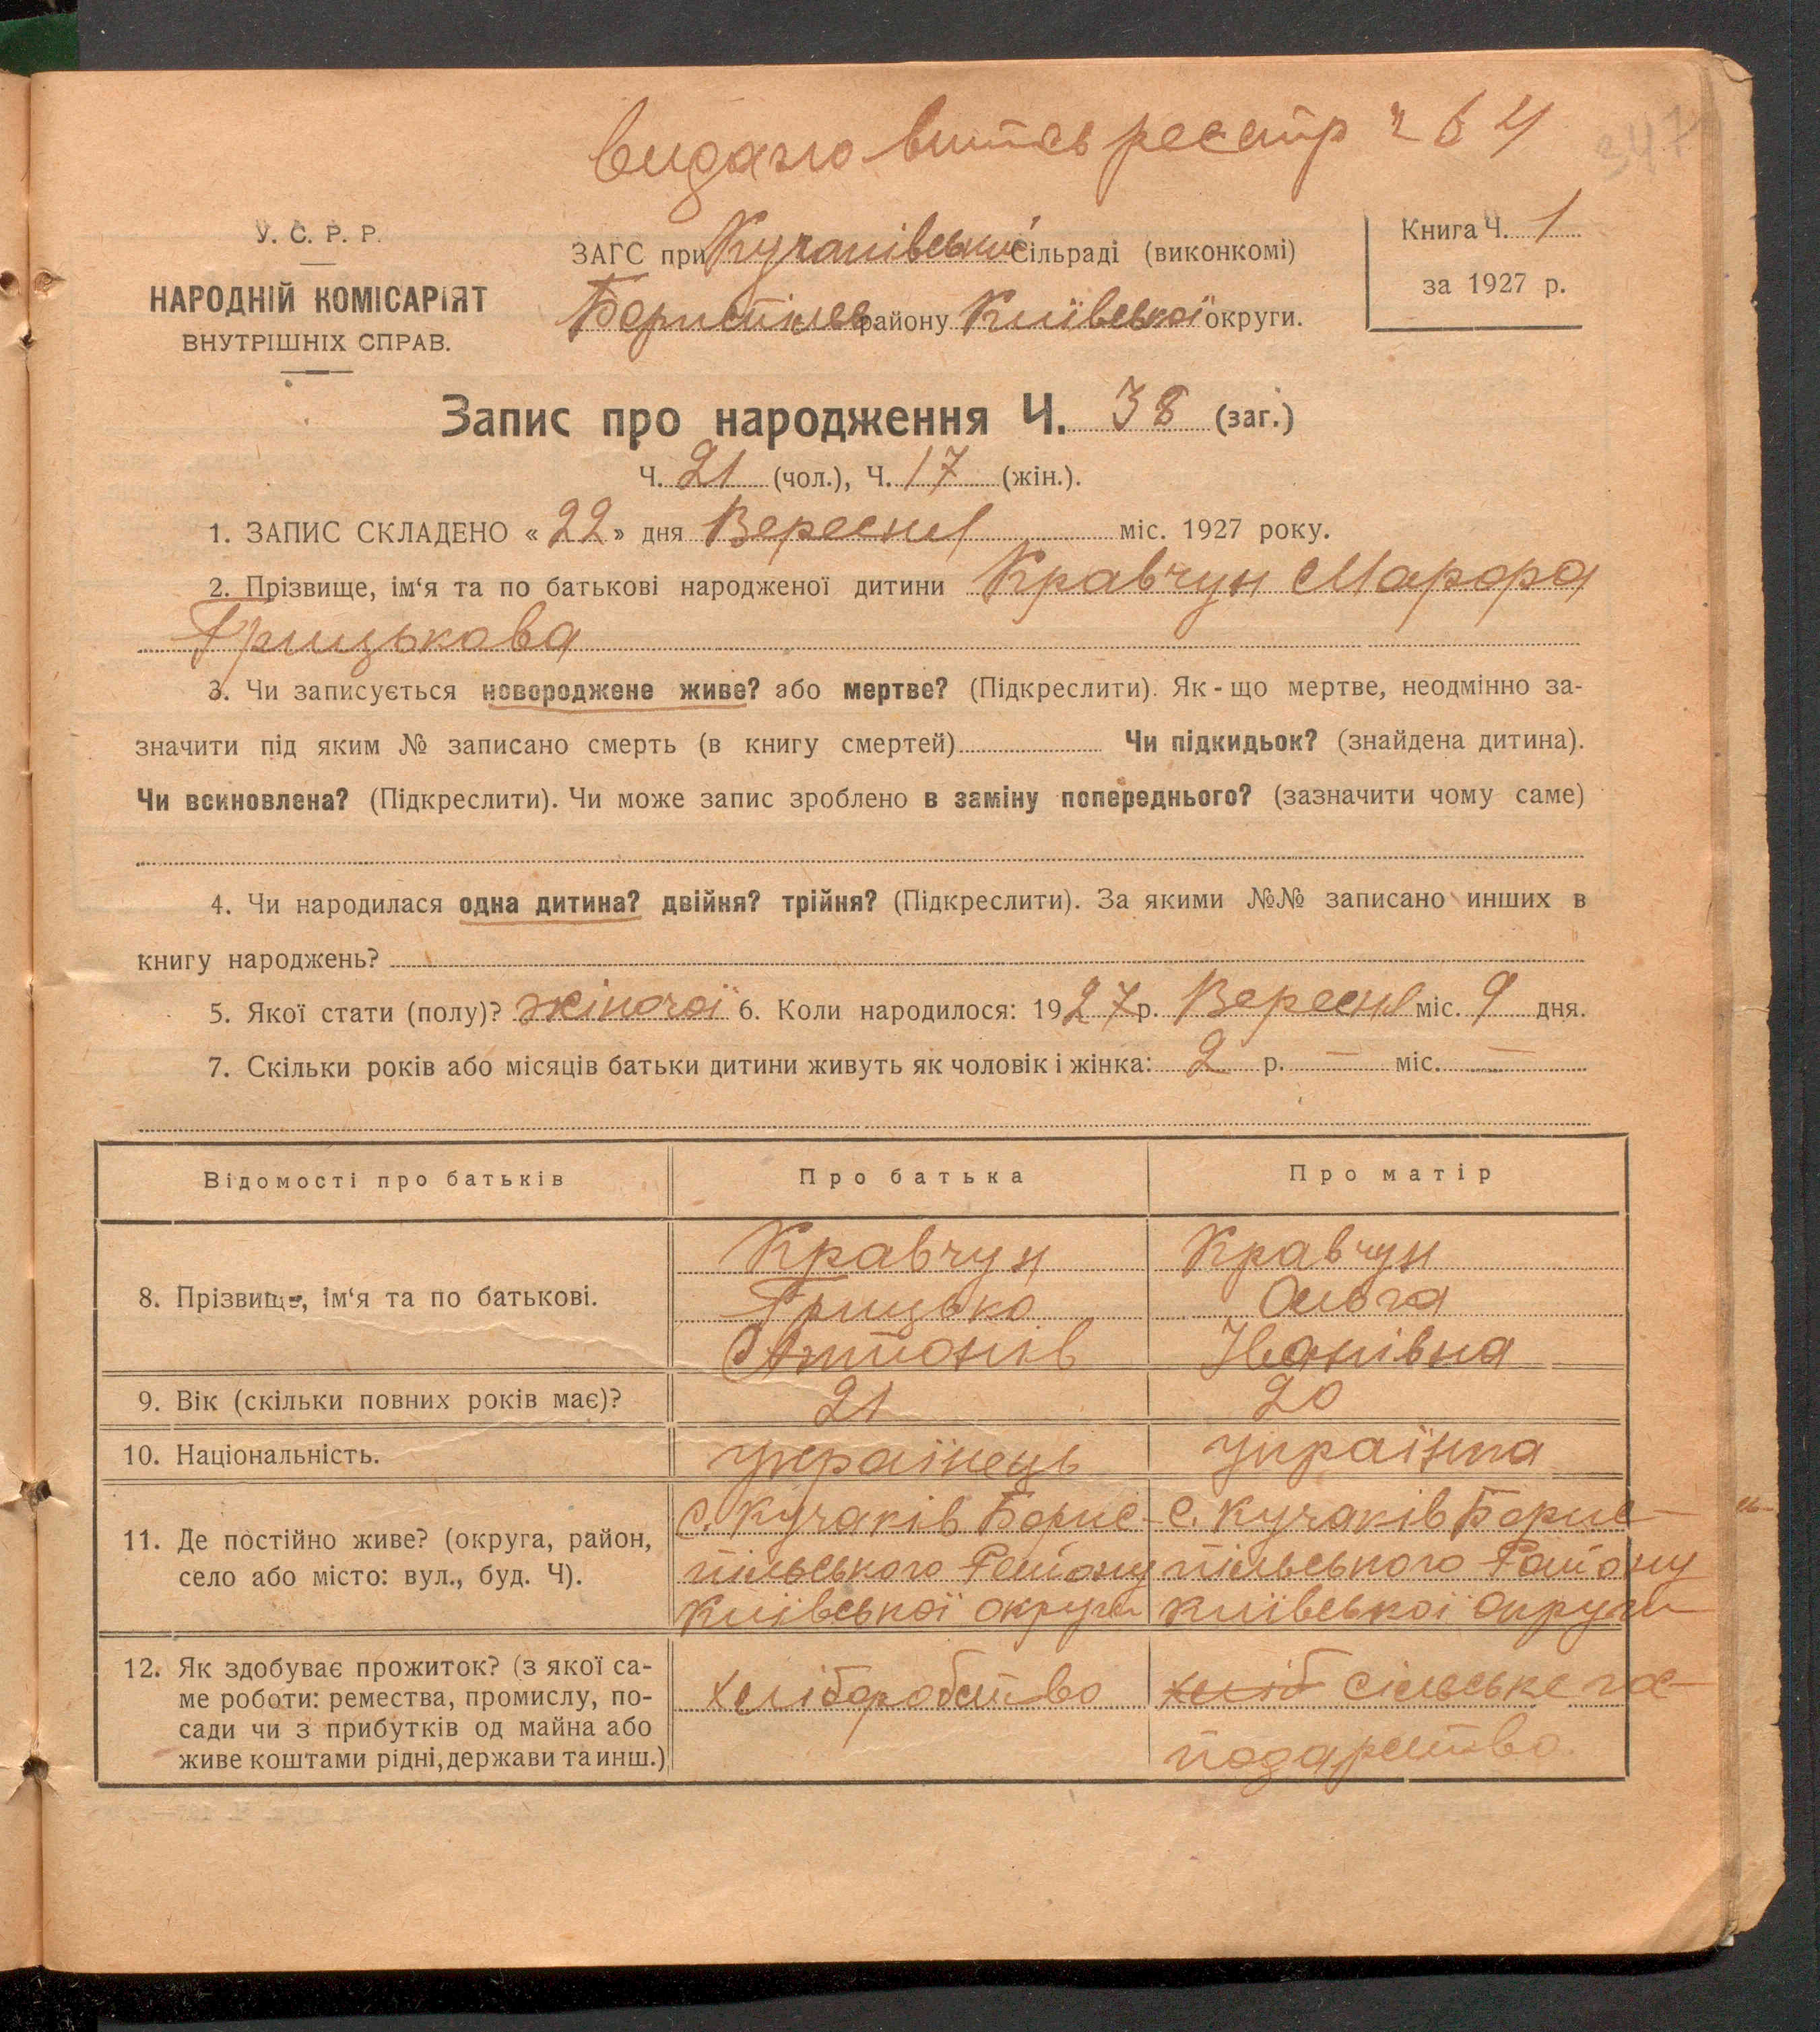 видано витяг реєстр ч 64
347
У. С. Р. Р.
НАРОДНІЙ КОМІСАРІЯТ
ВНУТРІШНІХ СПРАВ.
ЗАГС при Кучаківській сільраді (виконкомі)
Бориспілев району Київської округи.
Книга Ч. 1
за 1927 р.
Запис про народження Ч. 38 (заг.)
Ч. 21 (чол.), Ч. 17 (жін.).
1. ЗАПИС СКЛАДЕНО «22» дня Вересня міс. 1927 року.
2. Прізвище, ім‘я та по батькові народженої дитини Кравчун Марфа
Грицькова
3. Чи записується новороджене живе? або мертве? (Підкреслити). Як-що мертве, неодмінно за-
значити під яким № записано смерть (в книгу смертей) Чи підкидьок? (знайдена дитина).
Чи всиновлена? (Підкреслити). Чи може запис зроблено в заміну попереднього? (зазначити чому саме)
4. Чи народилася одна дитина? двійня? трійня? (Підкреслити). За якими №№ записано инших в
книгу народжень?
5. Якої стати (полу)? жіночої 6. Коли народилося: 1927 р. Вересня міс. 9 дня.
7. Скільки років або місяців батьки дитини живуть як чоловік і жінка: 2 р. — міс. —
Відомості про батьків Про батька Про матір
8. Прізвище, ім‘я та по батькові.
Кравчун
Грицько
Антонів
Кравчун
Ольга
Іванівна
9. Вік (скільки повних років має)? 21 20
10. Національність. українець українка
11. Де постійно живе? (округа, район,
село або місто: вул., буд. Ч).
с. Кучаків Борис-
пільського Району
Київської округи
с. Кучаків Борис-
пільського Району
Київської округи
12. Як здобуває прожиток? (з якої са-
ме роботи: ремества, промислу, по-
сади чи з прибутків од майна або
живе коштами рідні, держави та инш.)
хліборобство
хліб сільське гос-
подарство.